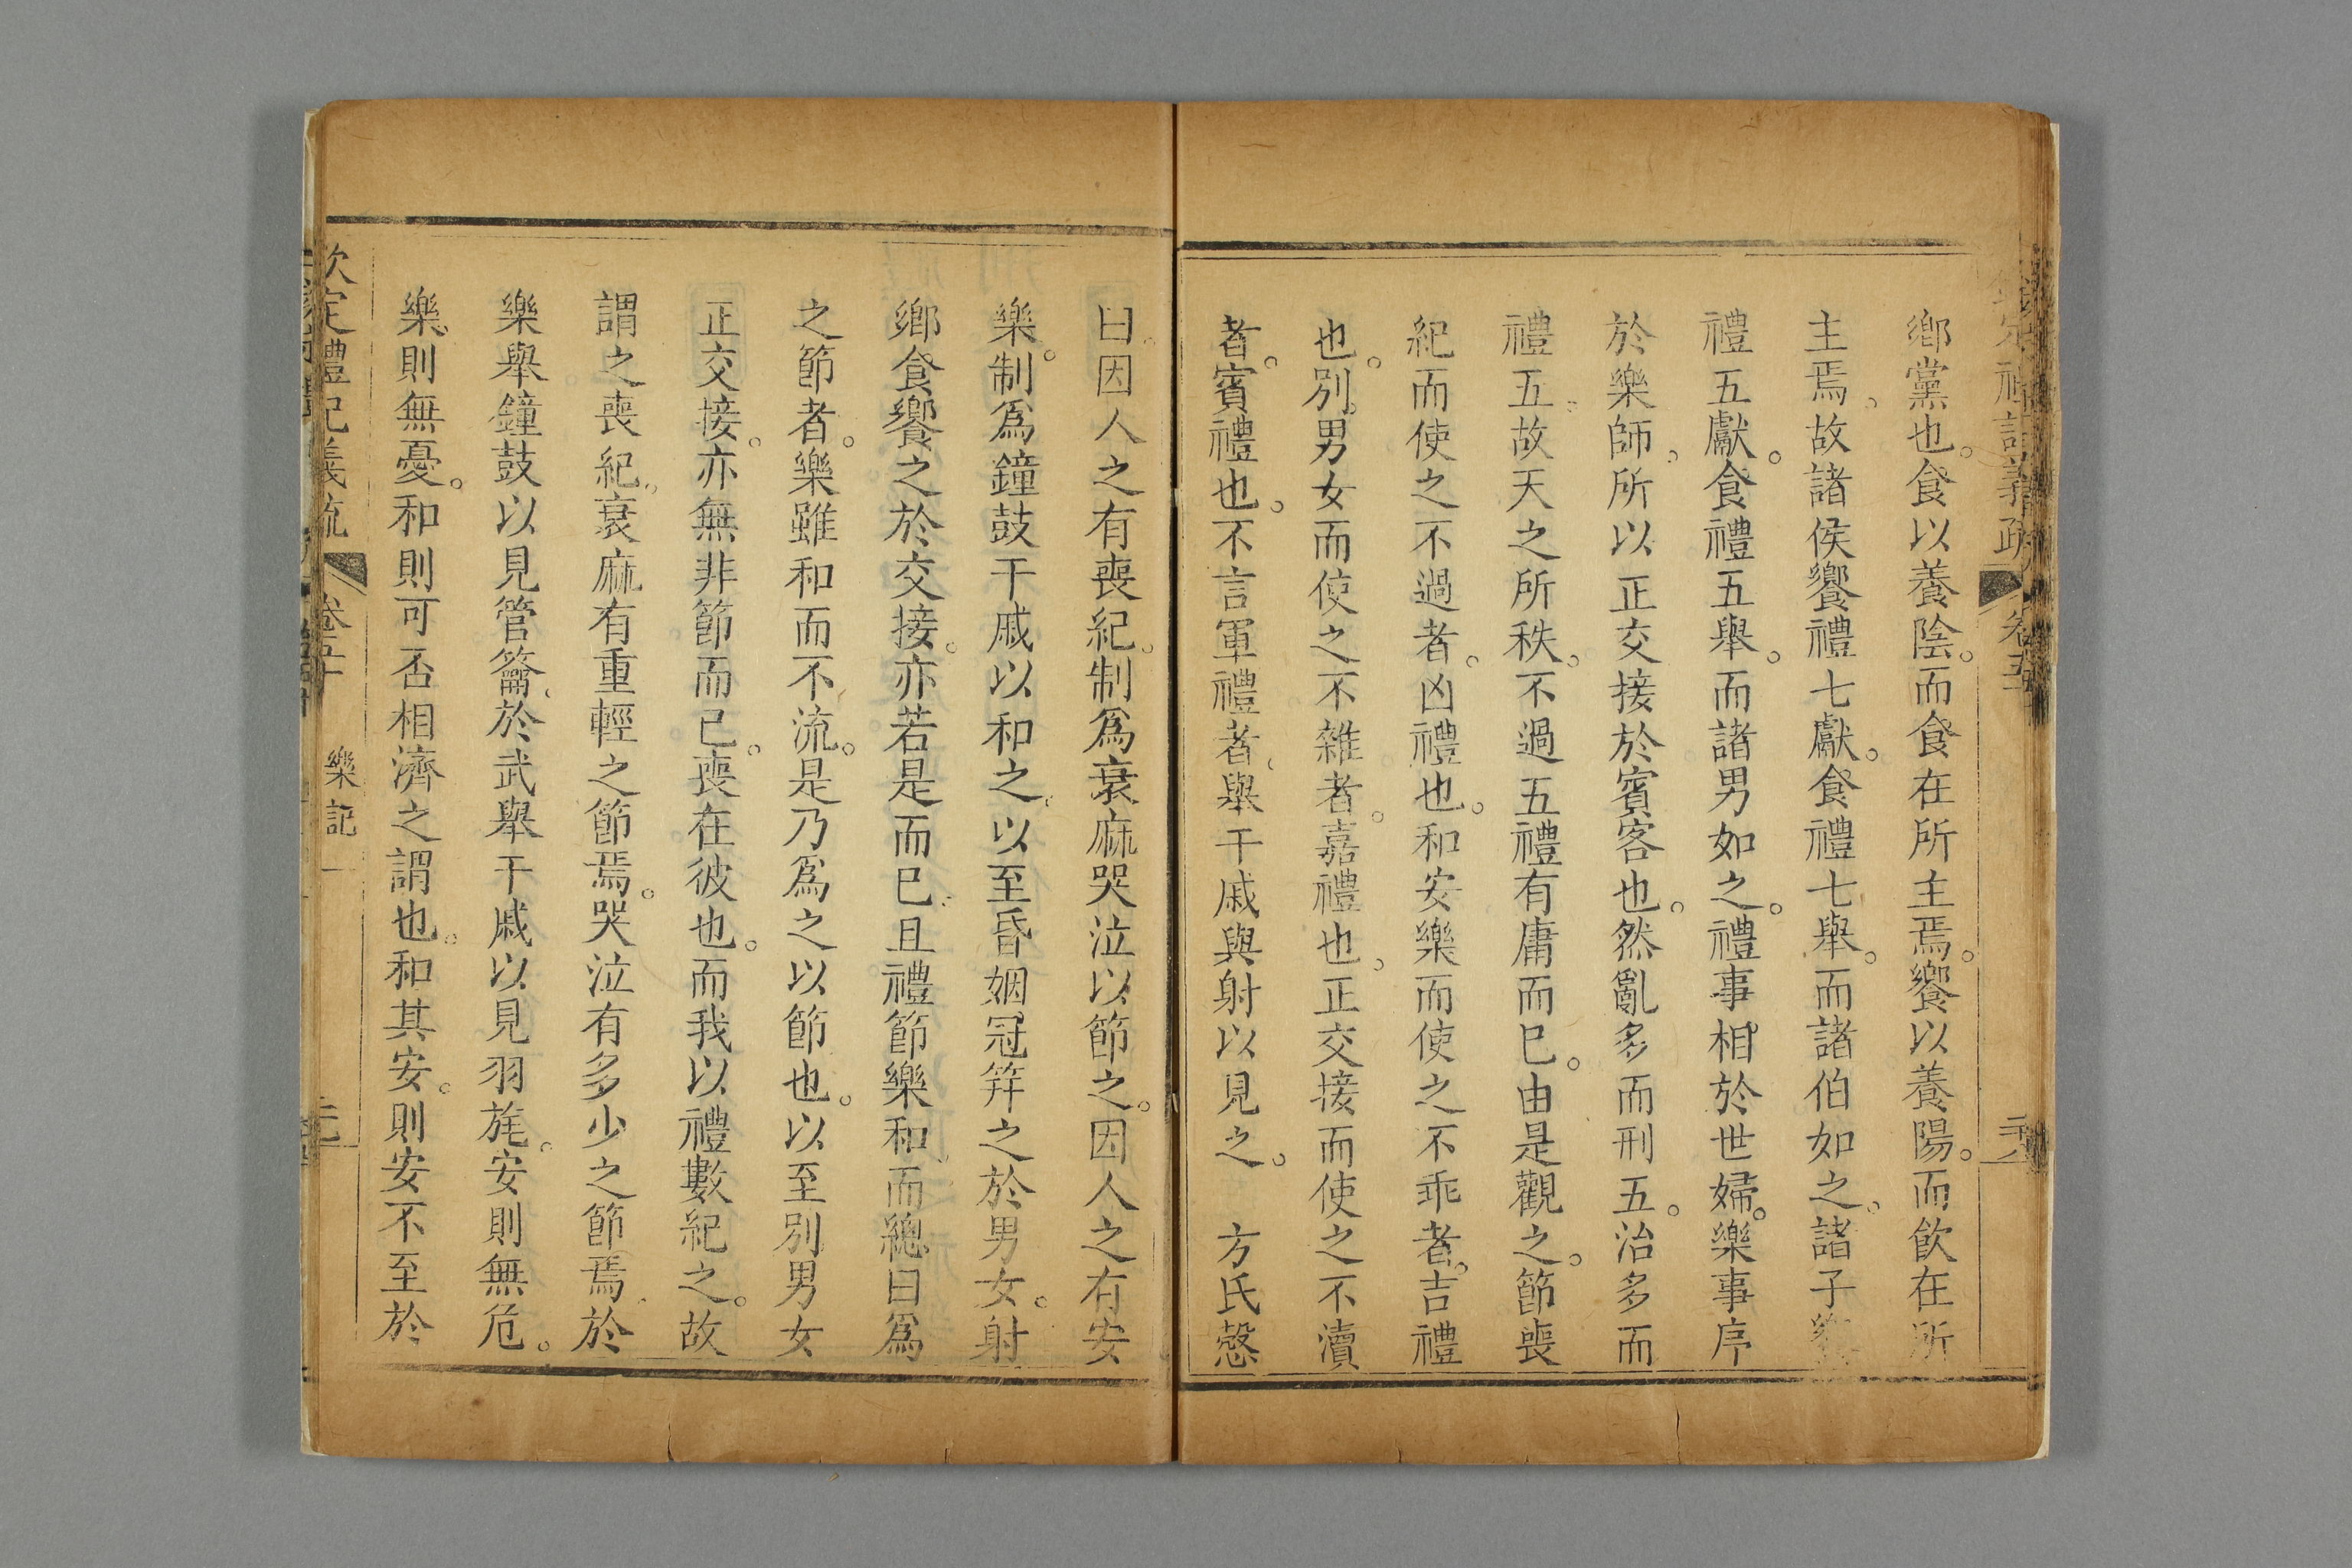 鄉黨也。食以養陰。而食在所主焉。饗以養陽。而飲在所
主焉。故諸侯饗禮七獻。食禮七舉。而諸伯如之。諸子饗
禮五獻。食禮五舉。而諸男如之。禮事相於世婦。樂事序
於樂師。所以正交接於賓客也。然亂多而刑五。治多而
禮五。故天之所秩。不過五禮有庸而已。由是觀之。節喪
紀而使之不過者。凶禮也。和安樂而使之不乖者。吉禮
也。別男女而使之不雜者。嘉禮也。正交接而使之不瀆
者。賓禮也。不言軍禮者。舉干戚與射以見之。 方氏慤
曰。因人之有喪紀。制爲衰麻哭泣以節之。因人之有安
樂。制爲鐘鼓干戚以和之。以至昏姻冠笄之於男女。射
鄉食饗之於交接。亦若是而已。且禮節樂和。而總曰爲
之節者。樂雖和而不流。是乃爲之以節也。以至別男女
正交接。亦無非節而已。喪在彼也。而我以禮數紀之。故
謂之喪紀。衰麻有重輕之節焉。哭泣有多少之節焉。於
樂舉鐘鼓以見管籥。於武舉干戚以見羽旄。安則無危。
樂則無憂。和則可否相濟之謂也。和其安。則安不至於
欽定禮記義疏 卷五十 樂記一